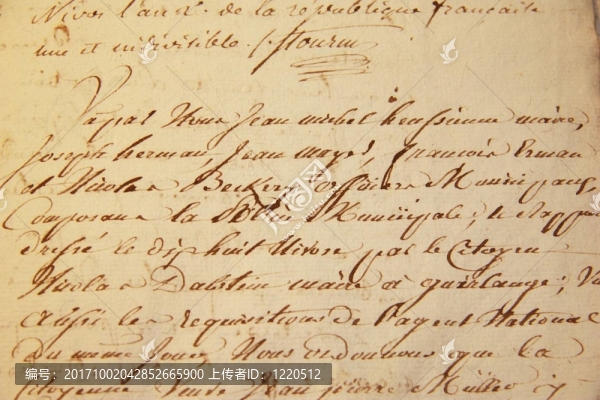 Nivos l'an 2. de la république française
une et indivisible. f. flourin
Vû par Nous Jean michel maire,
Joseph herman, Jean mayer, francois Erman
et Nicolas Becker officiers Municipaux,
Composans la Police Municipale; le rapport
dressé le dixhuit Nivose par le Citoyen
Nicolas Dalstein maire à guirlange; Vu
aussi les requisitions de l'agent National
du même Jour; Nous ordonnons que la
Citoyenne Veuve Jean pierre Muller
编号: 20171002042852665900 上传者ID: 1220512